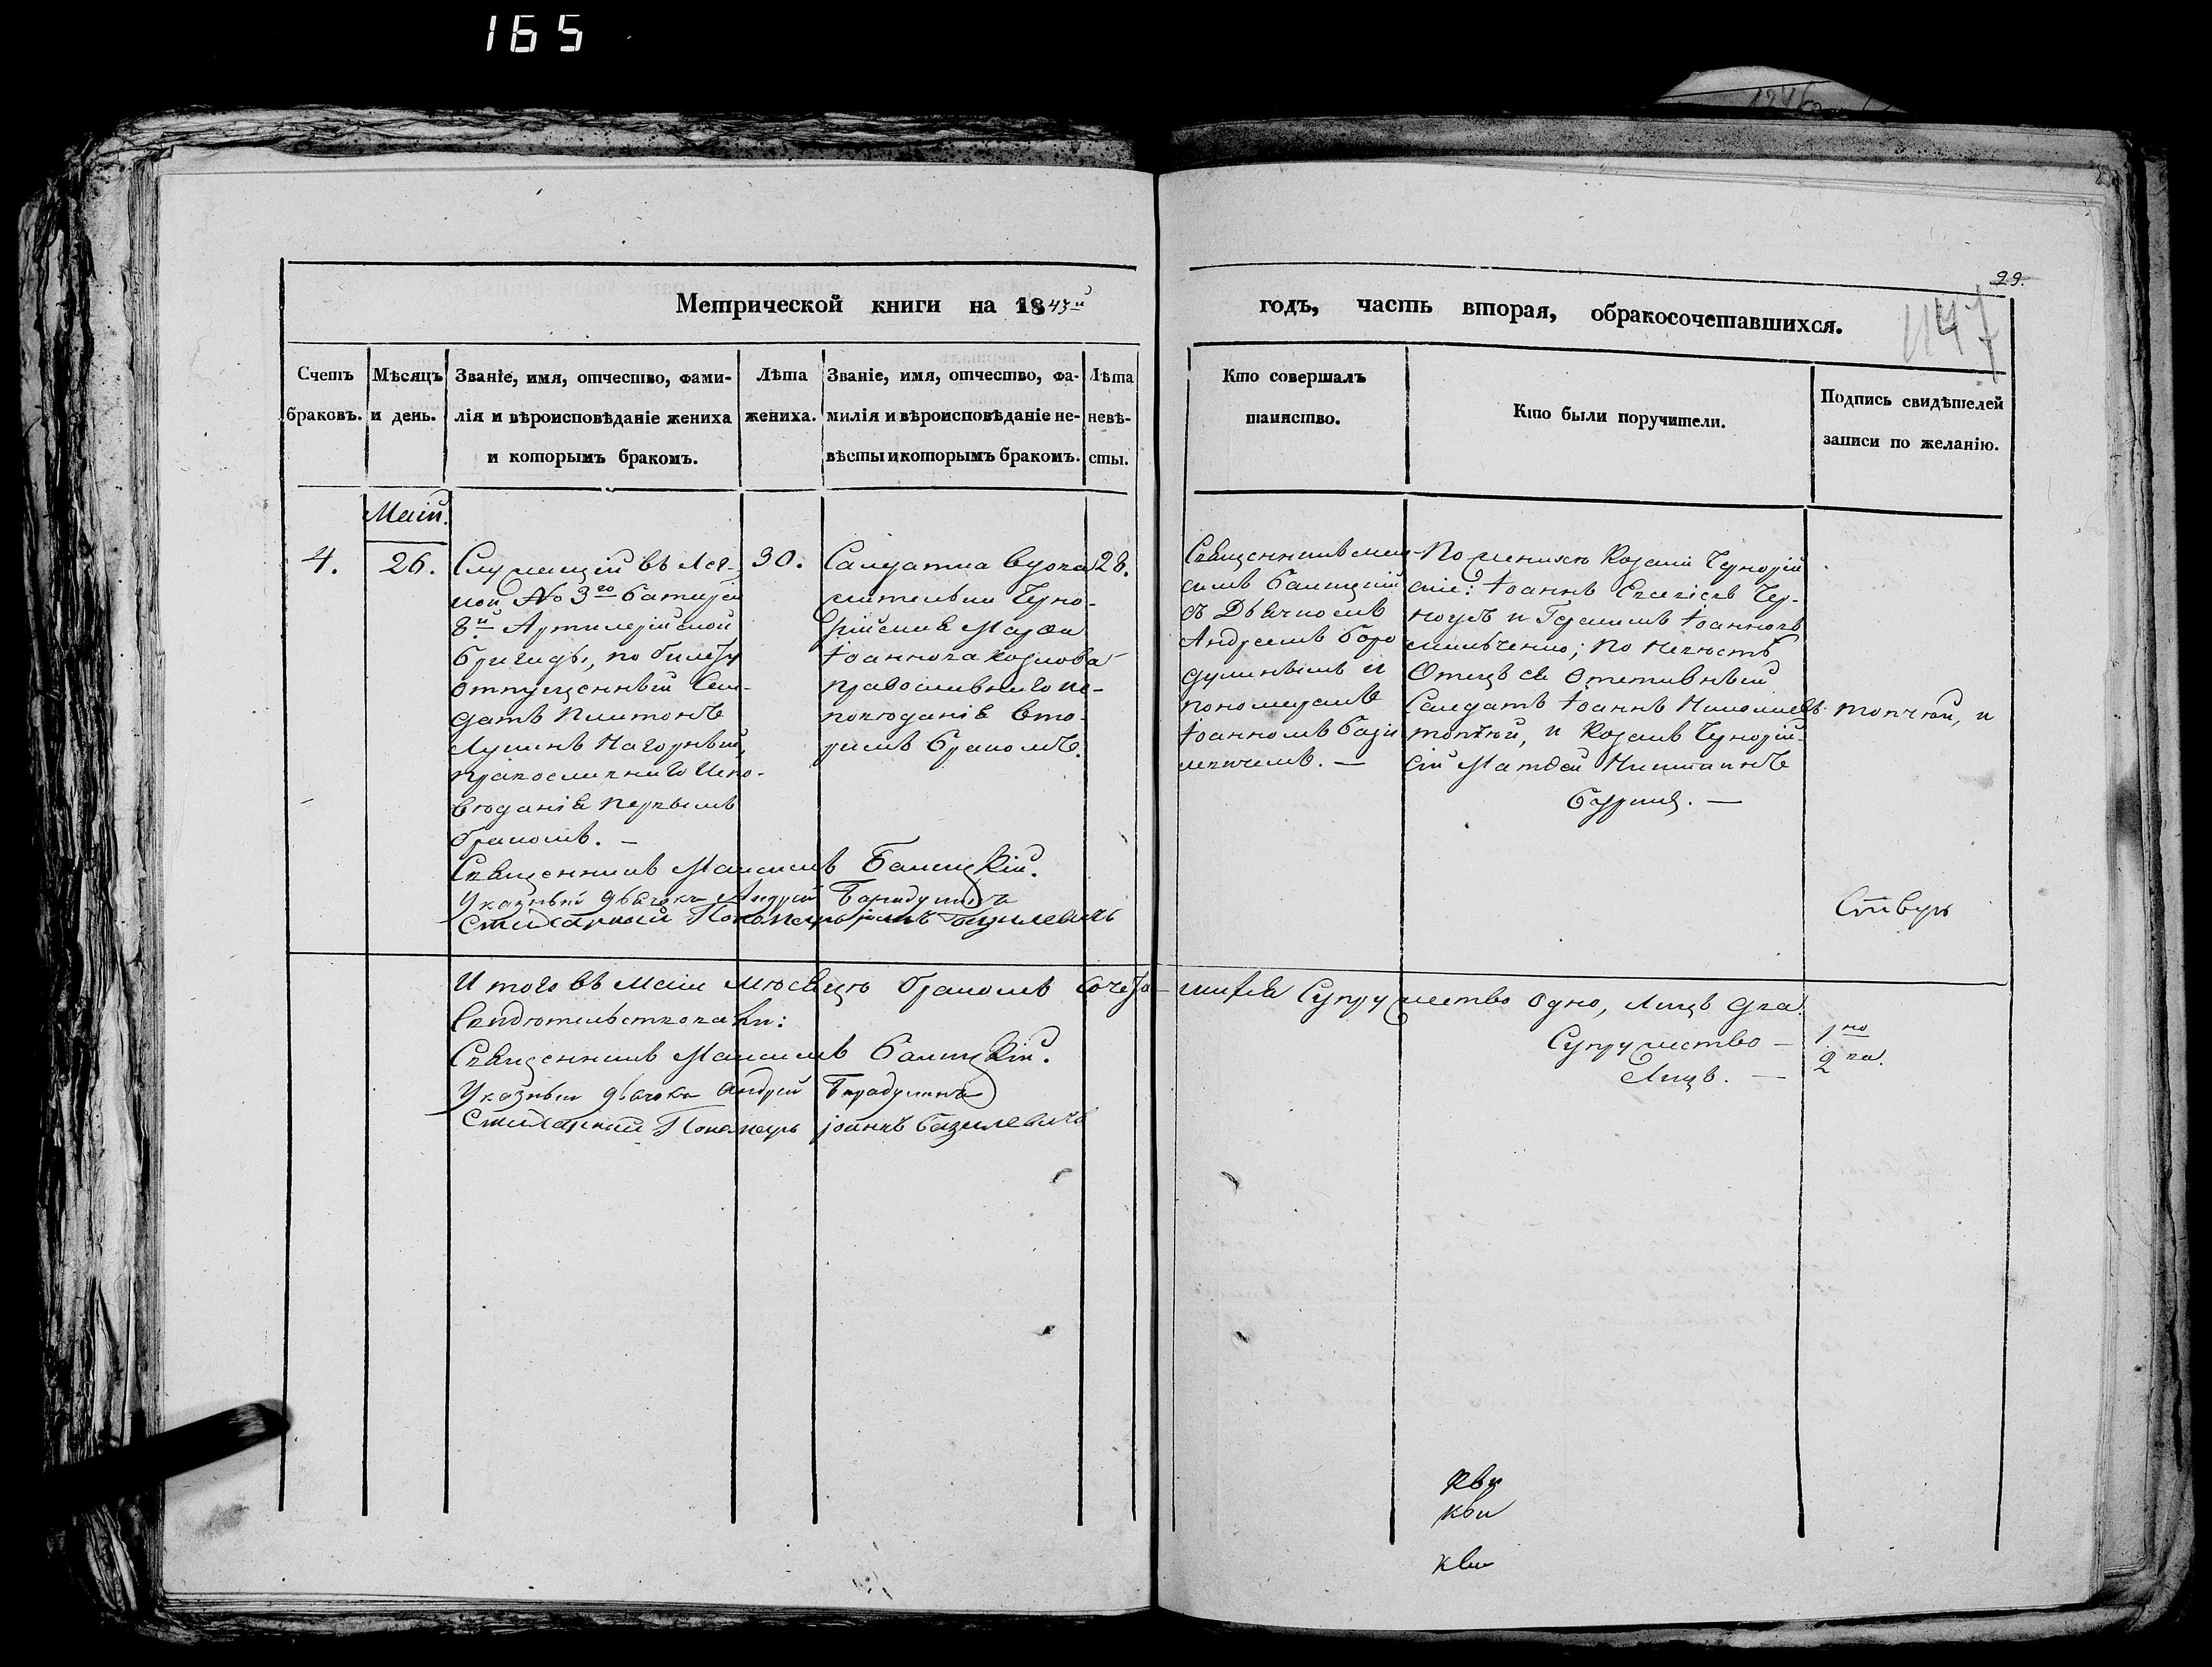 165
29.
1147
Метрической книги на 1843й годъ, часть вторая, обракосочетавшихся.
Счетъ браковъ.
Мѣсяцъ и день.
Званіе, имя, отчество, фами-
лія и вѣроисповѣданіе жениха
и которымъ бракомъ.
Лѣта жениха.
Званіе, имя, отчество, фа-
милія и вѣроисповѣданіе не-
вѣсты и которымъ бракомъ.
Лѣта невѣ-
сты.
Кто совершалъ
таинство.
Кто были поручители.
Подпись свидѣтелей
записи по желанію.
Маій.
4.
26.
Служащій въ Лег-
кой No 3го батареи
8й Артилерійской
бригады, по билету
отпущенный Сол-
датъ Платонъ
Лукинъ Нагорный,
православнаго испо-
вѣданія первымъ
бракомъ. —
30.
Салдатка вдова
жителька Черно-
Марѳа
Іоаннова Козлова
православнаго ис-
повѣданія вто-
рымъ бракомъ.
28.
Священникъ Мак-
симъ Балицкій
съ Дьячкомъ
Андреемъ Боро
дулинымъ и
пономаремъ
Іоанномъ Бази
левичемъ. —
По женихѣ Козаки
Іоаннъ
и Герасимъ Іоанновъ
по невѣстѣ
Отецъ ея Отставный
Салдатъ Іоаннъ
и Козакъ
Матѳей
Священникъ Максимъ Балицкій.
Указный дьячокъ Андрей Бородулинъ
Стихарный Пономарь Іоаннъ Базилевичъ
Итого въ Маіи мѣсяцѣ бракомъ сочета-
лись Супружество одно, Лицъ два.
Свидѣтельствовали:
Супружество — 1но
Лицъ. — 2ва.
Священникъ Максимъ Балицкій.
Указный дьячокъ Андрей Бородулинъ
Стихарный Пономарь Іоаннъ Базилевичъ